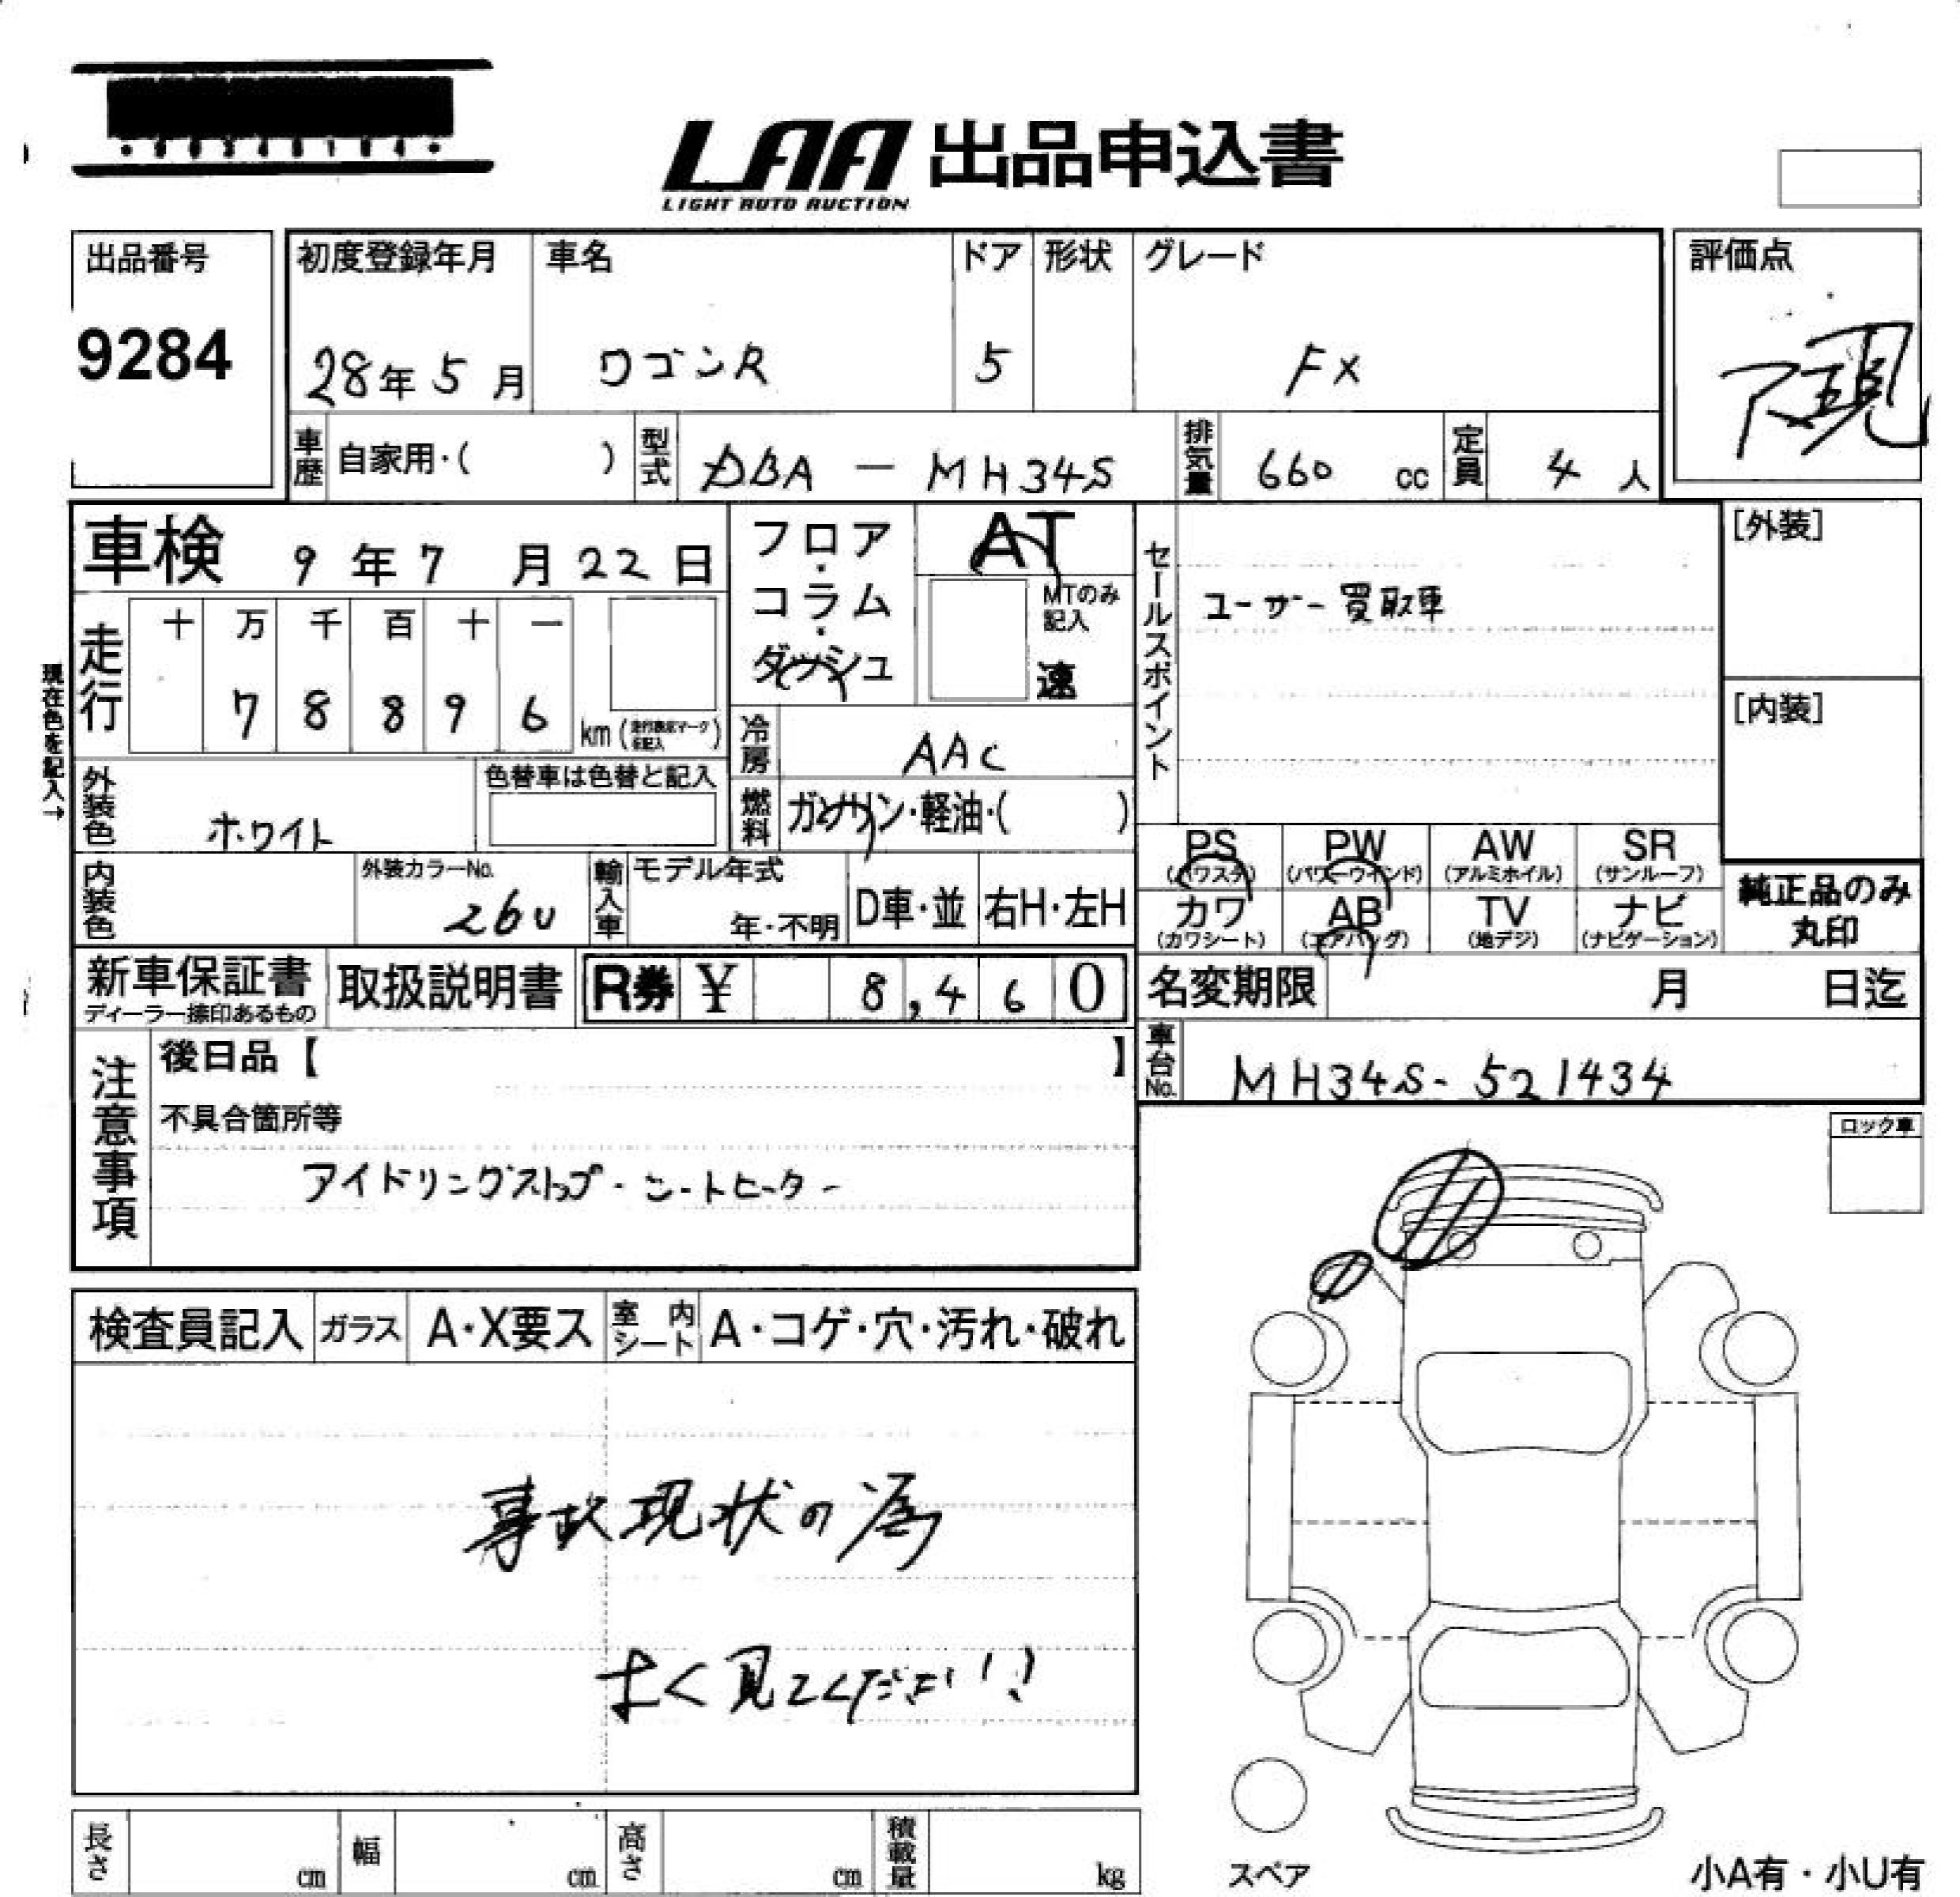 LAA 出品申込書
LIGHT AUTO AUCTION
出品番号
9284
初度登録年月
28年5月
車名
ワゴンR
ドア
5
形状
グレード
FX
評価点
車歴
自家用・( )
型式
DBA - MH34S
排気量
660 cc
定員
4 人
車検 9年7月22日
走行
十 万 千 百 十 一
7 8 8 9 6 km
現在色を記入→
外装色
ホワイト
色替車は色替と記入
内装色
外装カラーNo.
26U
輸入車
モデル年式
年・不明
D車・並
右H・左H
フロア・コラム・ダッシュ
AT
MTのみ記入
速
冷房
AAC
燃料
ガソリン・軽油・( )
セールスポイント
ユーザー買取車
[外装]
[内装]
PS (パワステ)
PW (パワーウインド)
AW (アルミホイル)
SR (サンルーフ)
カワ (カワシート)
AB (エアバッグ)
TV (地デジ)
ナビ (ナビゲーション)
純正品のみ丸印
新車保証書
ディーラー捺印あるもの
取扱説明書
R券 ¥ 8,460
名変期限 月 日迄
車台No.
MH34S-521434
注意事項
後日品【 】
不具合箇所等
アイドリングストップ・シートヒーター
ロック車
検査員記入
ガラス
A・X要ス
室内シート
A・コゲ・穴・汚れ・破れ
事故現状の為
よく見てください!!
長さ cm
幅 cm
高さ cm
積載量 kg
スペア
小A有・小U有